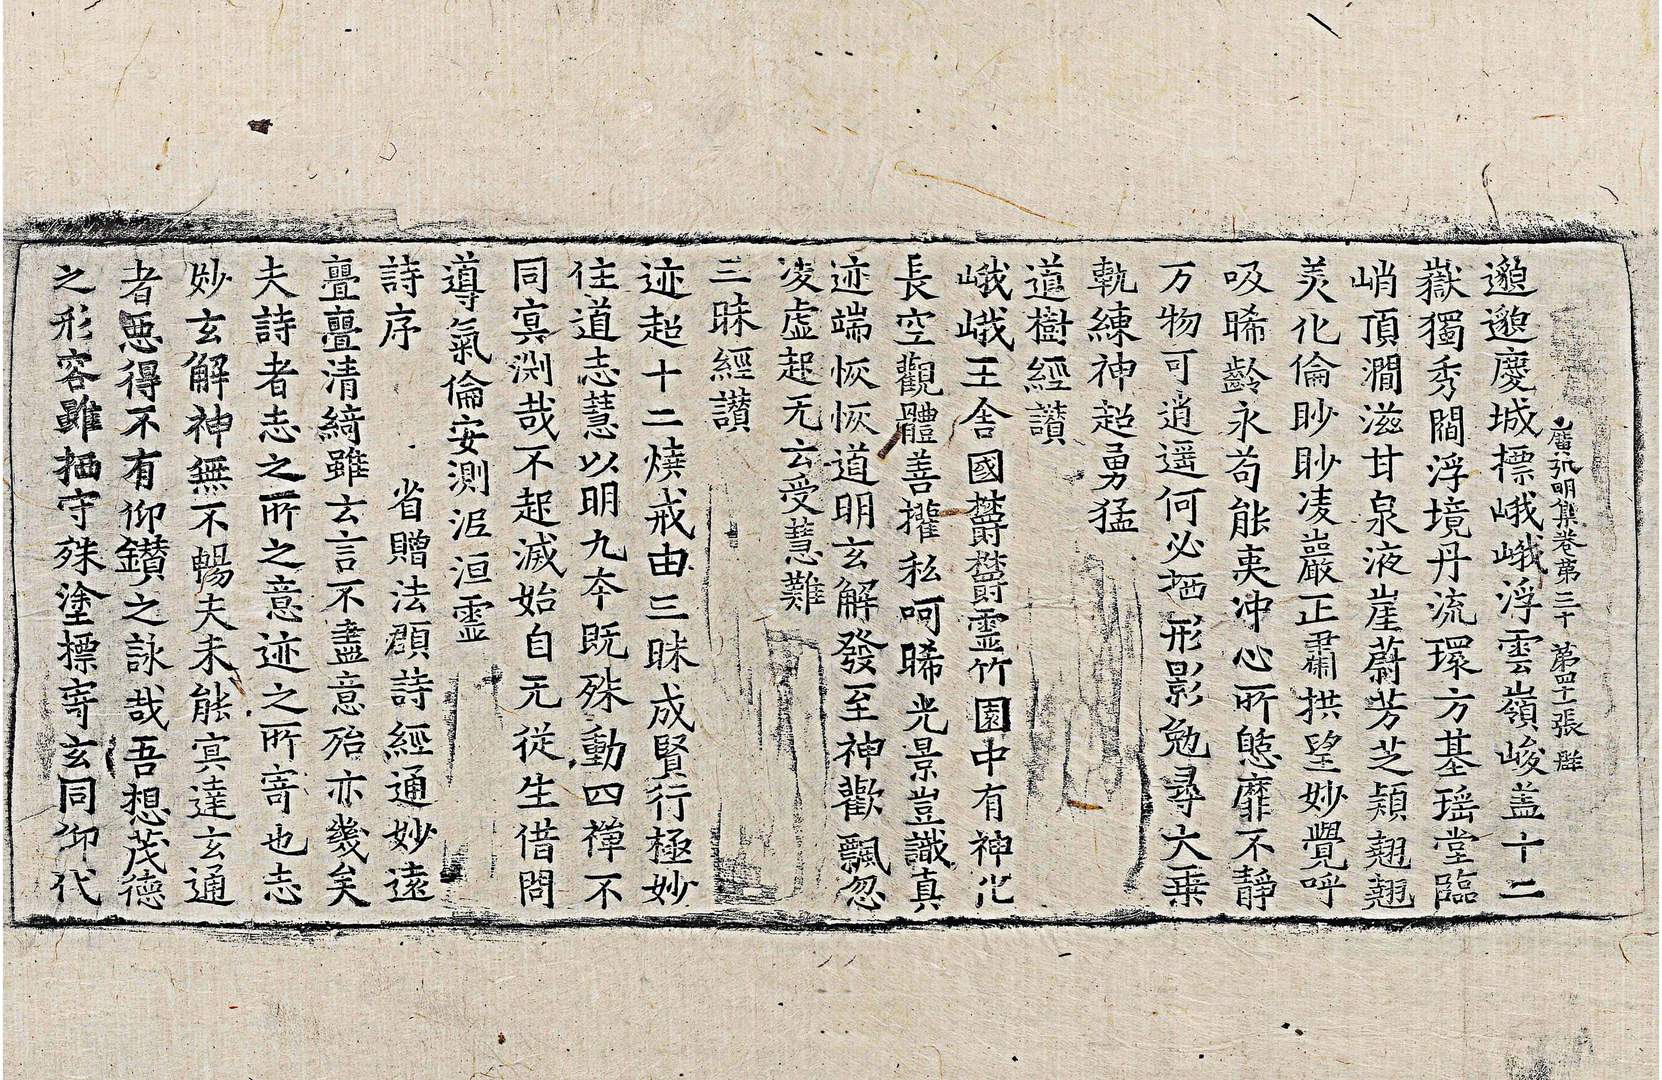 廣弘明集卷第三十 第四十一張 群
邈邈慶城標峨峨浮雲嶺峻盖十二
嶽獨秀閻浮境丹流環方基瑶堂臨
峭頂澗滋甘泉液崖蔚芳芝穎翹翹
羙化倫眇眇凌巖正肅拱望妙覺呼
吸晞齡永苟能夷冲心所憩靡不静
万物可逍遥何必栖形影勉尋大乗
軌練神超勇猛
道樹經讃
峨峨王舍國欝欝靈竹園中有神化
長空觀體善權私呵晞光景豈識真
迹端恢恢道明玄解發至神歡飄忽
凌虚起无云受慧難
三昧經讃
迹超十二燒戒由三昧成賢行極妙
住道志慧以明九夲既殊動四禪不
同㝠渕哉不起滅始自无從生借問
導氣倫安測泥洹靈
詩序 省贈法頵詩經通妙遠
亹亹清綺雖玄言不盡意殆亦幾矣
夫詩者志之所之意迹之所寄也志
妙玄解神無不暢夫未能㝠達玄通
者惡得不有仰鑚之詠哉吾想茂德
之形容雖栖守殊塗標寄玄同仰代